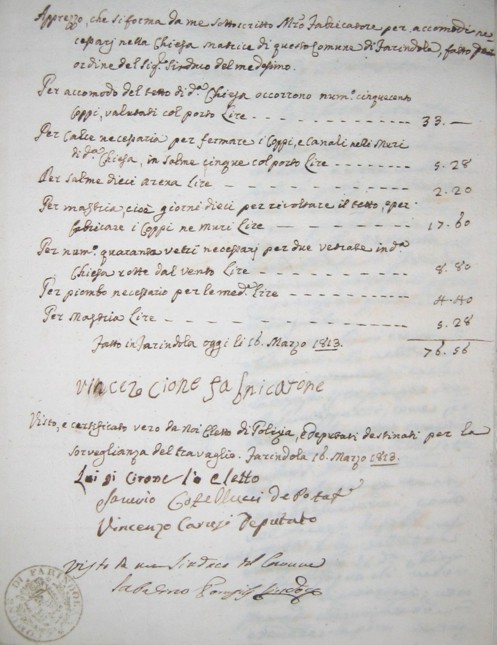 Apprezzo, che si forma da me sottoscritto Mro Fabricatore per accomodi ne=
cessarj nella Chiesa matrice di questo Comune di Farindola, fatto per
ordine del Sigr Sindaco del medesimo.
Per accomodo del tetto di da Chiesa occorrono numo cinquecento
Coppi, valutati col porto Lire - - - 33. —
Per calce necessaria per fermare i Coppi, e Canali nelli Muri
di da Chiesa, in salme cinque col porto Lire - - - 5. 28
Per salme dieci arena Lire - - - 2. 20
Per mastria, cioè giorni dieci per rivoltare il tetto, e per
fabricare i Coppi ne Muri Lire - - - 17. 60
Per numo quaranta vetri necessarj per due vetrate in da
Chiesa rotte dal vento Lire - - - 8. 80
Per piombo necessario per le mede Lire - - - 4. 40
Per Mastria Lire - - - 5. 28
Fatto in Farindola oggi li 16. Marzo 1813. 76. 56
Vincenzo Cirone fabricatore
Visto, e certificato vero da noi Eletto di Polizia, e deputati destinati per la
sorveglianza del travaglio. Farindola 16. Marzo 1813.
Cirone l'eletto
Colellucci deputato
Vincenzo Carusi Deputato
Visto da me Sindaco del Comune
Sindaco
DI FARINDOLA